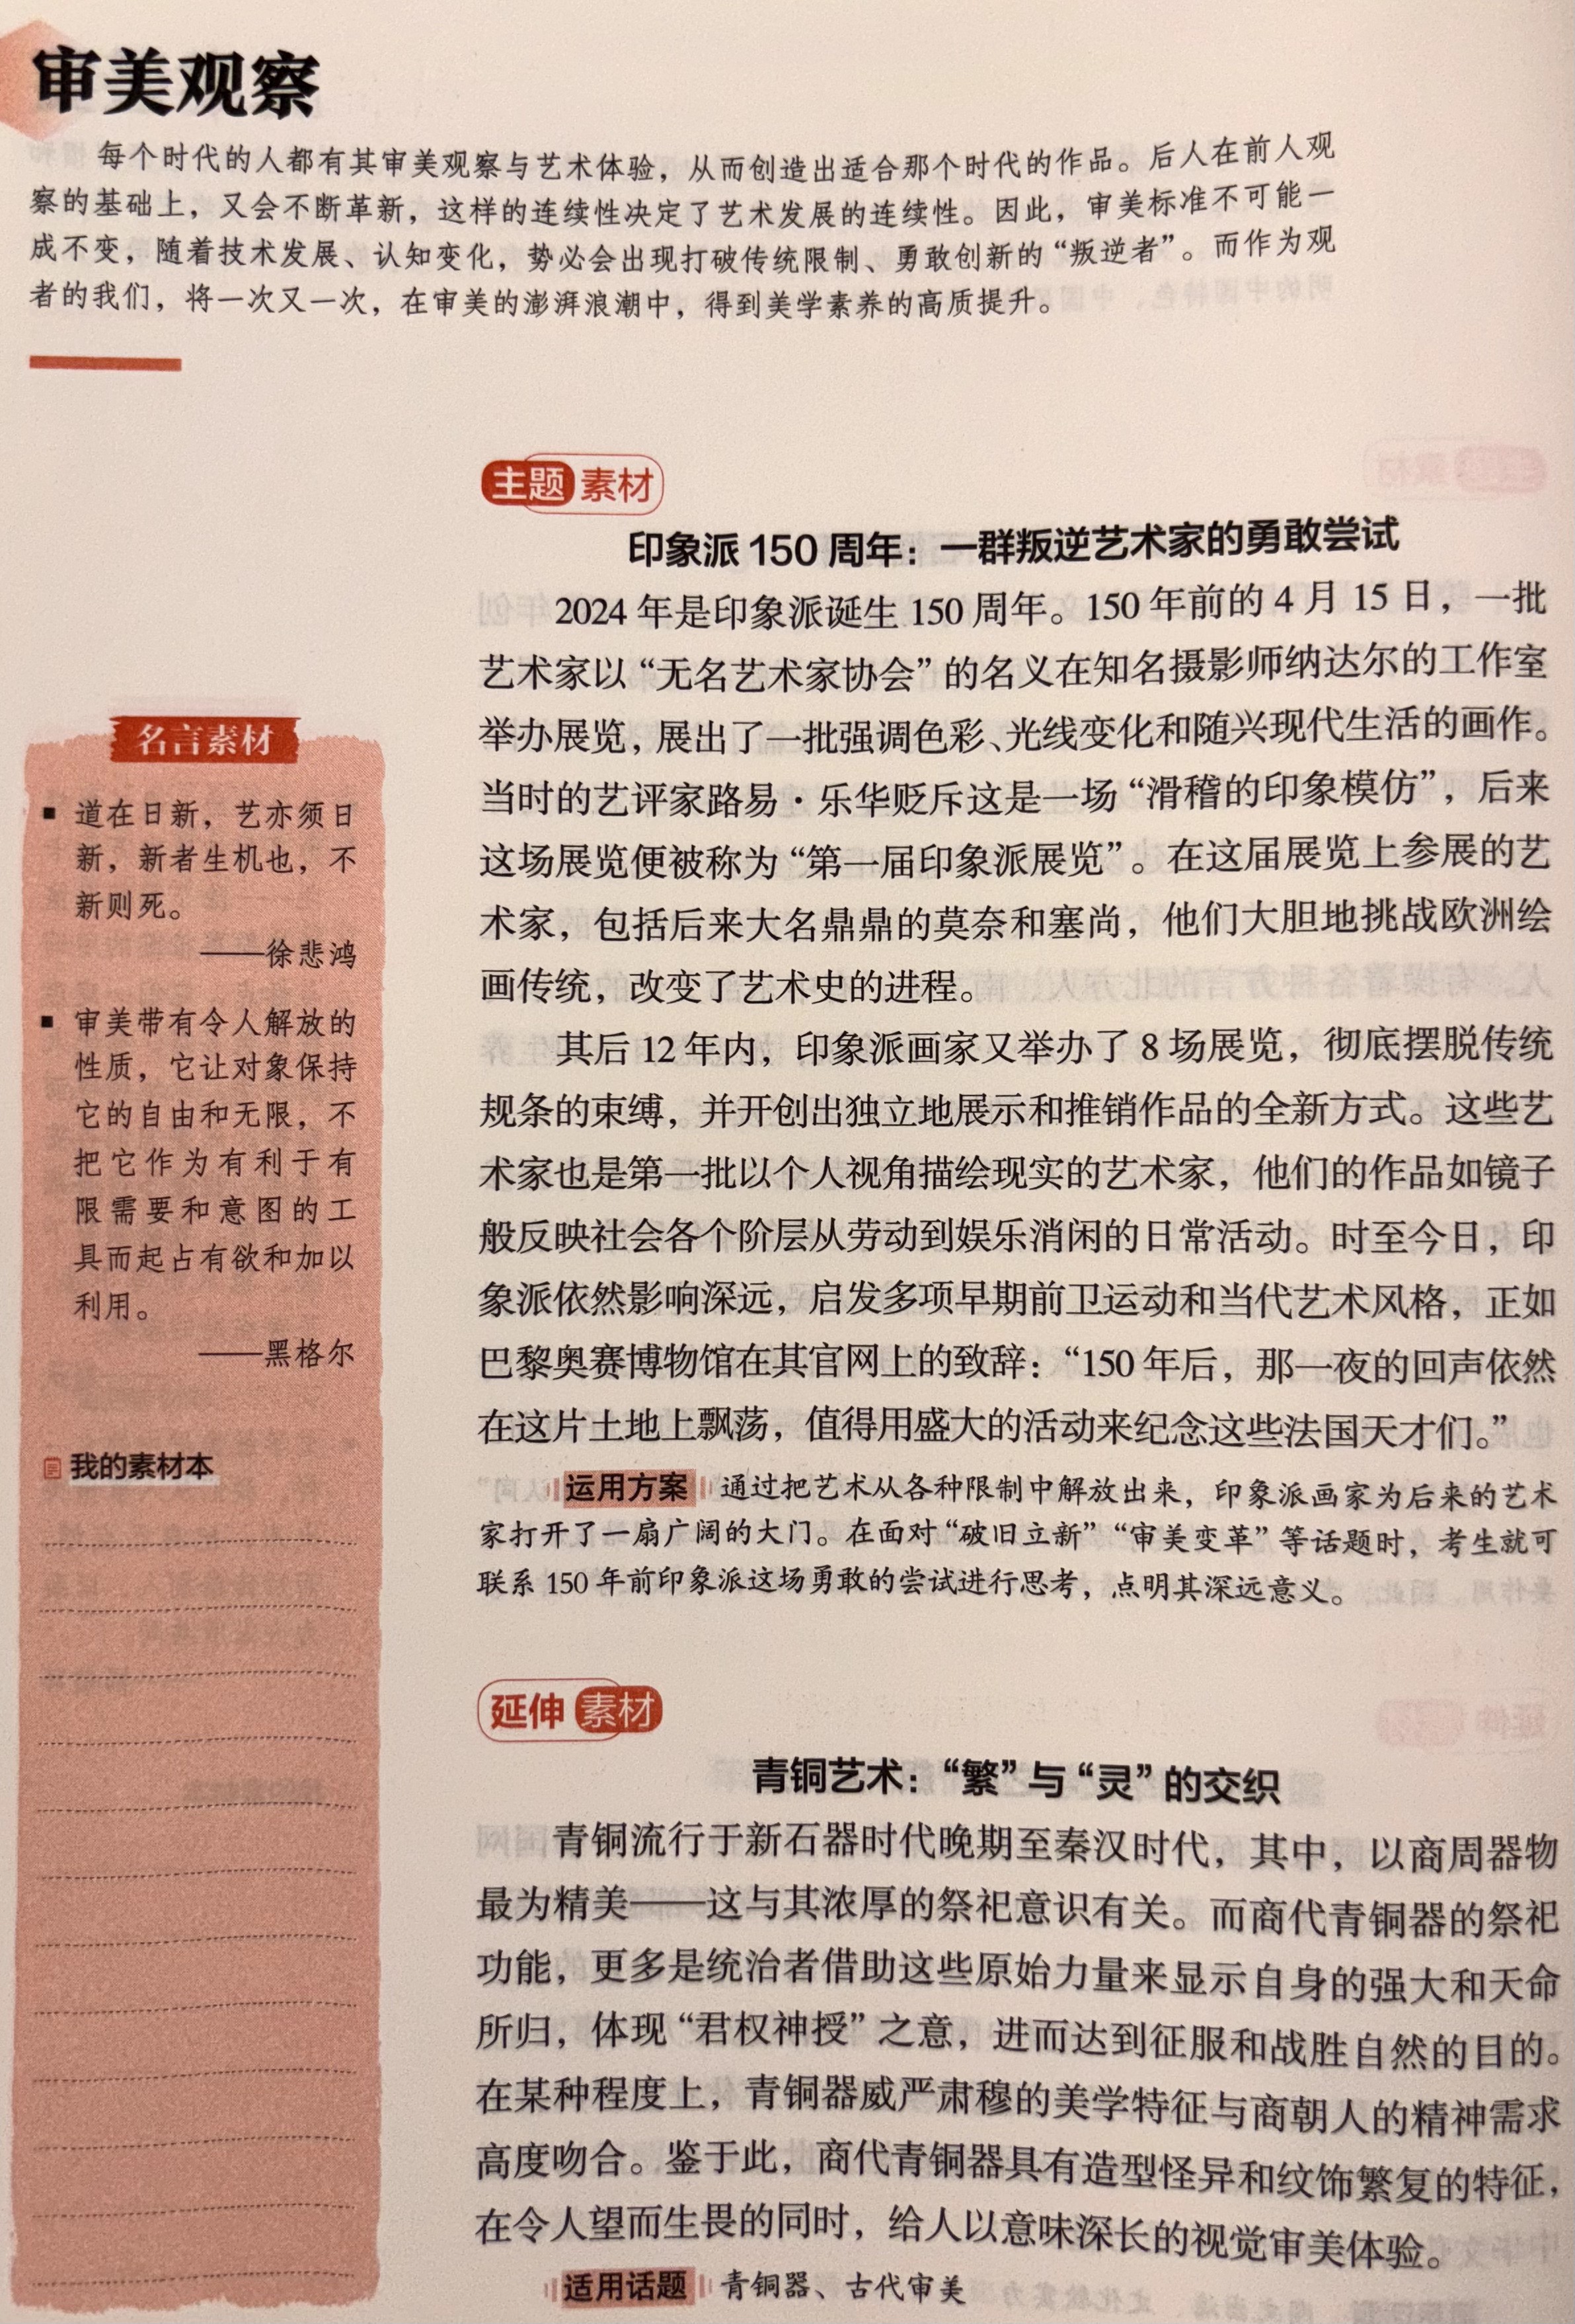 审美观察
每个时代的人都有其审美观察与艺术体验，从而创造出适合那个时代的作品。后人在前人观
察的基础上，又会不断革新，这样的连续性决定了艺术发展的连续性。因此，审美标准不可能一
成不变，随着技术发展、认知变化，势必会出现打破传统限制、勇敢创新的“叛逆者”。而作为观
者的我们，将一次又一次，在审美的澎湃浪潮中，得到美学素养的高质提升。
名言素材
▪ 道在日新，艺亦须日
新，新者生机也，不
新则死。
——徐悲鸿
▪ 审美带有令人解放的
性质，它让对象保持
它的自由和无限，不
把它作为有利于有
限需要和意图的工
具而起占有欲和加以
利用。
——黑格尔
我的素材本
主题素材
印象派 150 周年：一群叛逆艺术家的勇敢尝试
2024 年是印象派诞生 150 周年。150 年前的 4 月 15 日，一批
艺术家以“无名艺术家协会”的名义在知名摄影师纳达尔的工作室
举办展览，展出了一批强调色彩、光线变化和随兴现代生活的画作。
当时的艺评家路易·乐华贬斥这是一场“滑稽的印象模仿”，后来
这场展览便被称为“第一届印象派展览”。在这届展览上参展的艺
术家，包括后来大名鼎鼎的莫奈和塞尚，他们大胆地挑战欧洲绘
画传统，改变了艺术史的进程。
其后 12 年内，印象派画家又举办了 8 场展览，彻底摆脱传统
规条的束缚，并开创出独立地展示和推销作品的全新方式。这些艺
术家也是第一批以个人视角描绘现实的艺术家，他们的作品如镜子
般反映社会各个阶层从劳动到娱乐消闲的日常活动。时至今日，印
象派依然影响深远，启发多项早期前卫运动和当代艺术风格，正如
巴黎奥赛博物馆在其官网上的致辞：“150 年后，那一夜的回声依然
在这片土地上飘荡，值得用盛大的活动来纪念这些法国天才们。”
运用方案 通过把艺术从各种限制中解放出来，印象派画家为后来的艺术
家打开了一扇广阔的大门。在面对“破旧立新”“审美变革”等话题时，考生就可
联系 150 年前印象派这场勇敢的尝试进行思考，点明其深远意义。
延伸素材
青铜艺术：“繁”与“灵”的交织
青铜流行于新石器时代晚期至秦汉时代，其中，以商周器物
最为精美——这与其浓厚的祭祀意识有关。而商代青铜器的祭祀
功能，更多是统治者借助这些原始力量来显示自身的强大和天命
所归，体现“君权神授”之意，进而达到征服和战胜自然的目的。
在某种程度上，青铜器威严肃穆的美学特征与商朝人的精神需求
高度吻合。鉴于此，商代青铜器具有造型怪异和纹饰繁复的特征，
在令人望而生畏的同时，给人以意味深长的视觉审美体验。
适用话题 青铜器、古代审美